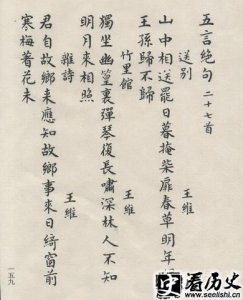 五言絕句 二十七首
送別 王維
山中相送罷日暮掩柴扉春草明年
王孫歸不歸
竹里館 王維
獨坐幽篁裏彈琴復長嘯深林人不知
明月來相照
雜詩 王維
君自故鄉來應知故鄉事來日綺窗前
寒梅著花未
一五九
看历史